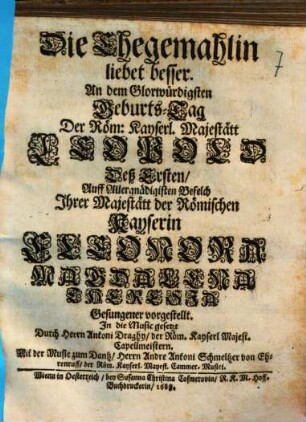 7
Die Ehegemahlin
liebet besser.
An dem Glorwürdigsten
Geburts-Tag
Der Röm: Kayserl. Majestätt
LEOPOLD
Deß Ersten/
Auff Allergnädigisten Befelch
Ihrer Majestätt der Römischen
Kayserin
ELEONORA
MAGDALENA
THERESIA
Gesungener vorgestellt.
In die Music gesetzt
Durch Herrn Antoni Draghy/ der Röm. Kayserl Majest.
Capellmeistern.
Mit der Music zum Dantz/ Herrn Andre Antoni Schmeltzer von Eh-
renruff/ der Röm. Kayserl. Mayest. Cammer-Musici.
Wienn in Oesterreich/ bey Susanna Christina Cosmerovin/ R. K. M. Hoff-
Buchdruckerin/